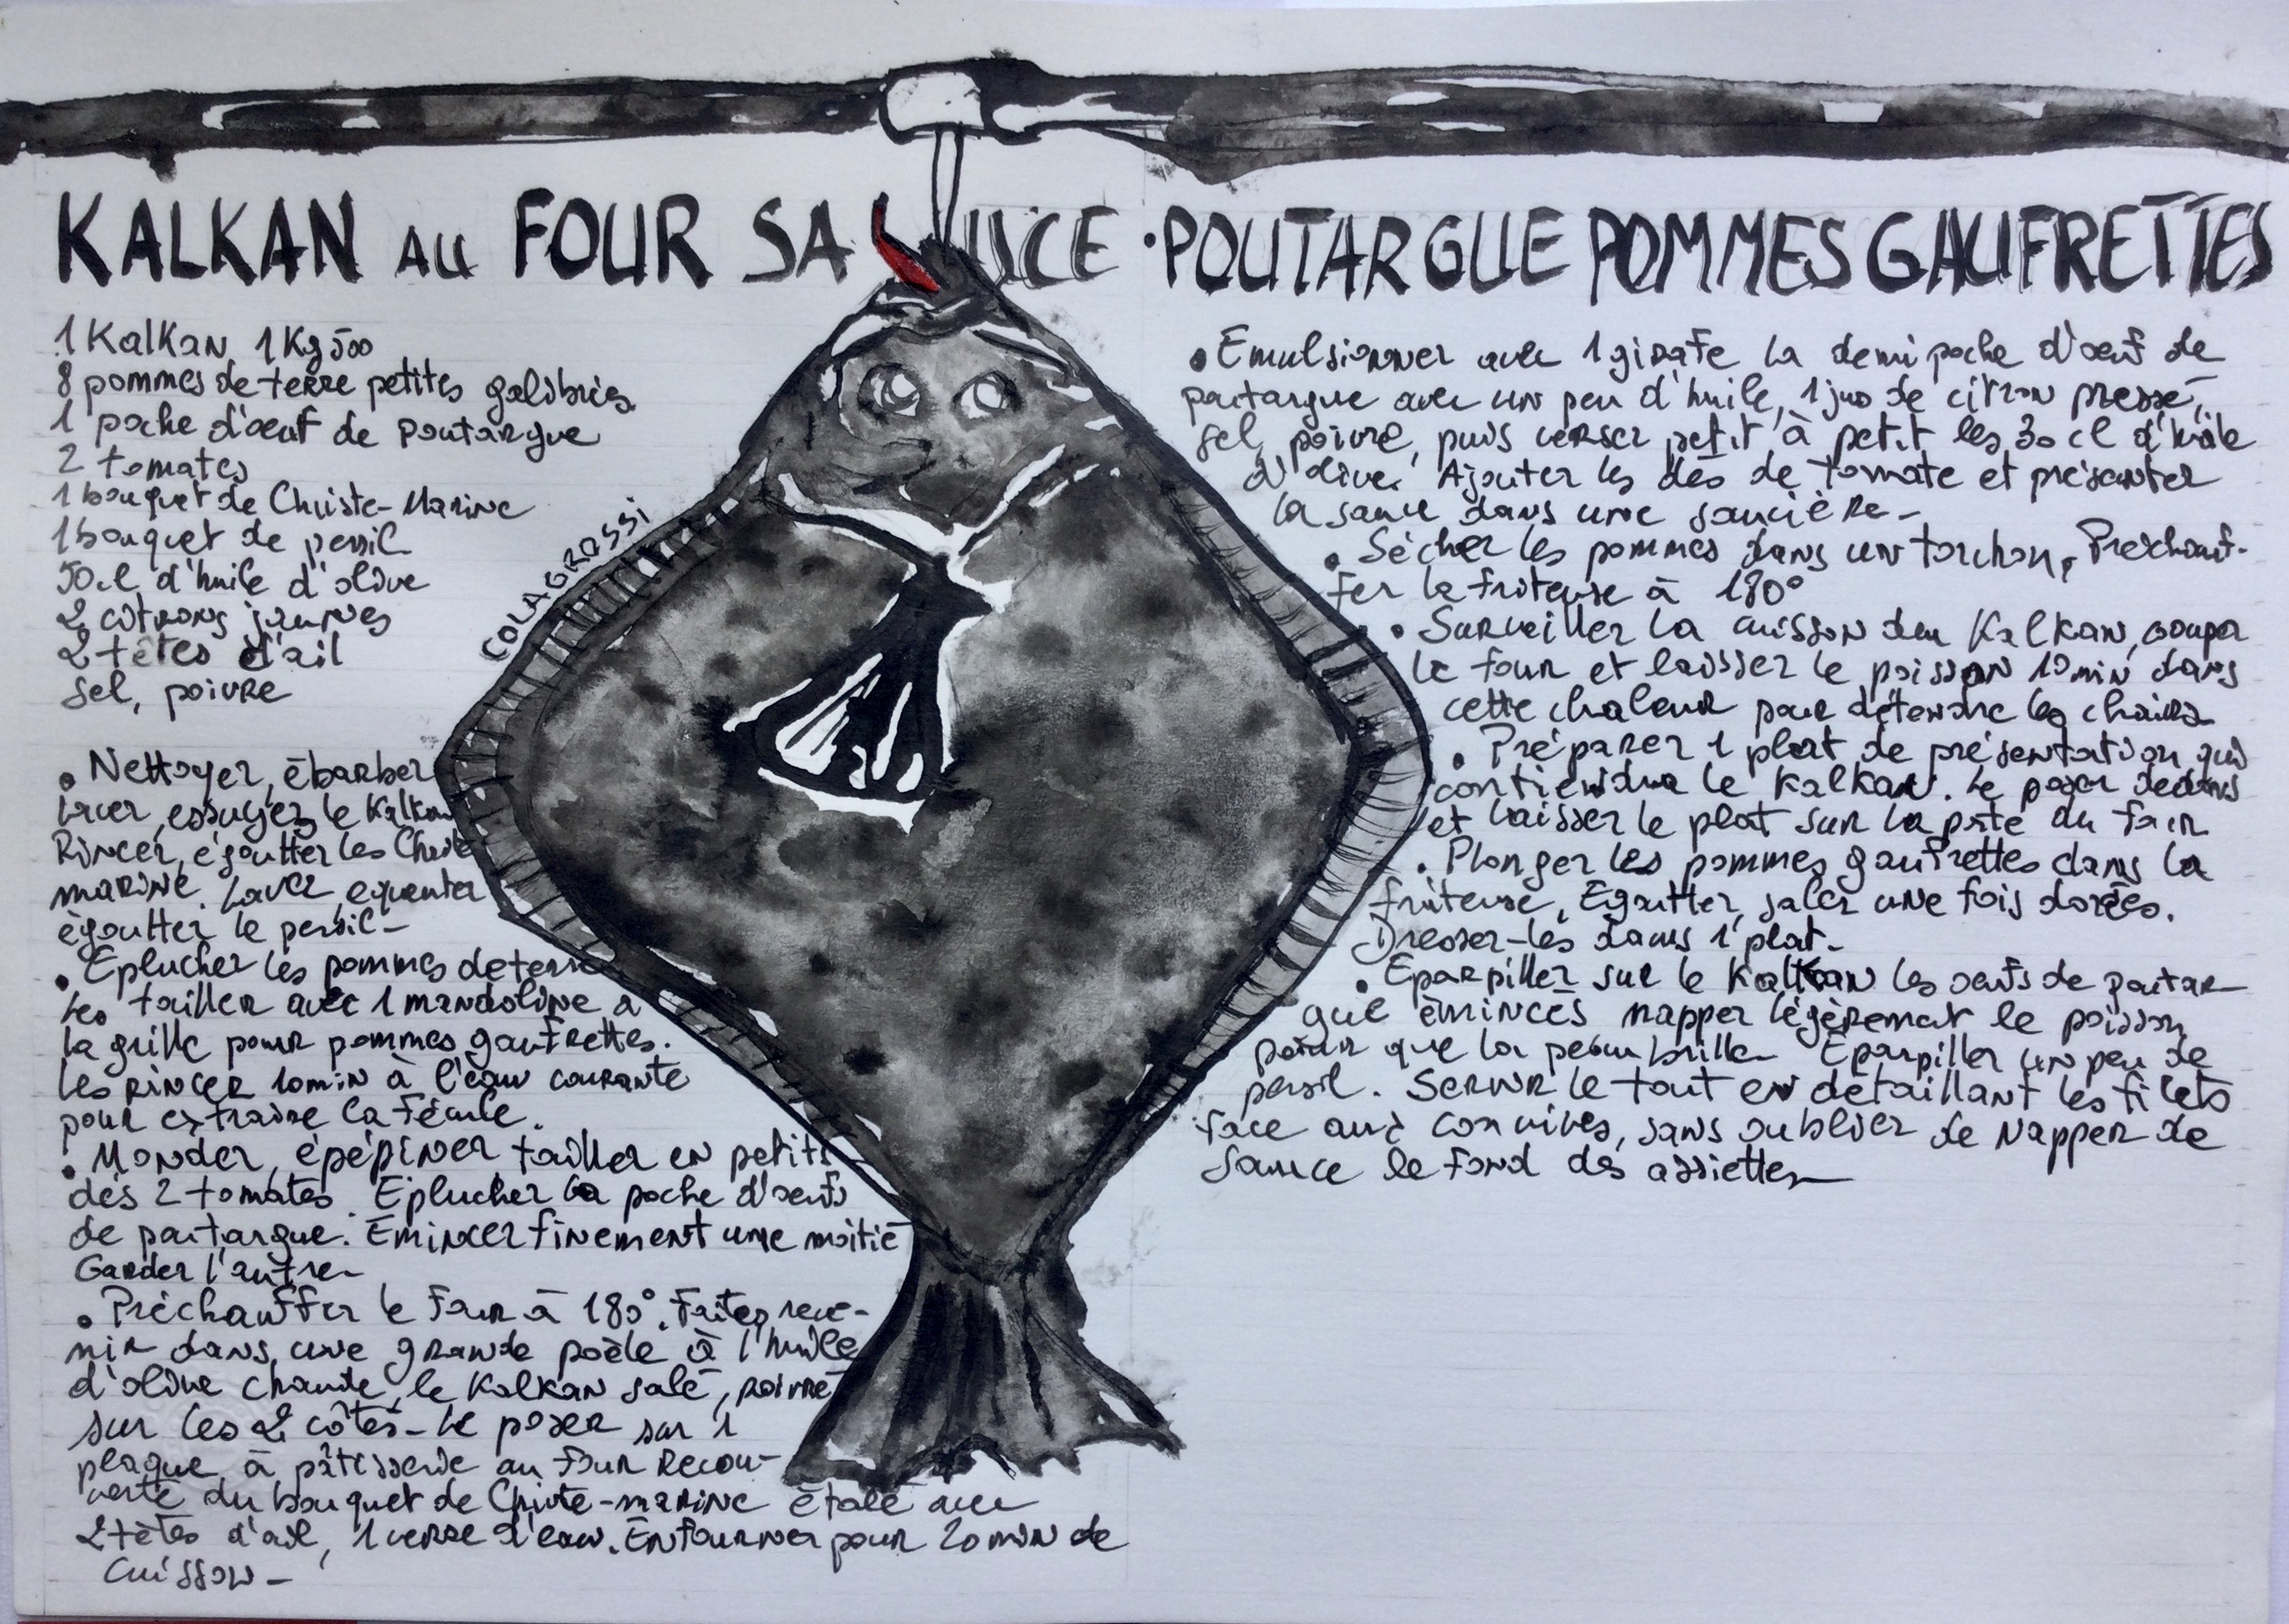 KALKAN AU FOUR SAUCE POUTARGUE POMMES GAUFRETTES
1 Kalkan 1Kg500
8 pommes de terre petites
1 poche d'œuf de poutargue
2 tomates
1 bouquet de Christe-Marine
1 bouquet de persil
50cl d'huile d'olive
2 citrons jaunes
2 têtes d'ail
sel, poivre
COLAGROSSI
• Nettoyer, ébarber
laver, essuyer le Kalkan
Rincer, égoutter les Christe
marine. Laver, équeuter
égoutter le persil-
• Eplucher les pommes de terre
les tailler avec 1 mandoline à
la grille pour pommes gaufrettes.
les rincer 10min à l'eau courante
pour extraire la fécule.
• Monder, épépiner tailler en petits
dés 2 tomates. Eplucher la poche d'œufs
de poutargue. Emincer finement une moitié
Garder l'autre-
• Préchauffer le four à 180°. Faites reve-
nir dans une grande poêle à l'huile
d'olive chaude, le Kalkan salé, poivré
sur les 2 côtés- le poser sur 1
plaque à pâtisserie au four recou-
verte du bouquet de Christe-marine étalé avec
2 têtes d'ail, 1 verre d'eau. Enfourner pour 20 min de
cuisson-
• Emulsionner avec 1 girafe la demi poche d'œuf de
poutargue avec un peu d'huile, 1 jus de citron pressé,
sel, poivre, puis verser petit à petit les 30 cl d'huile
d'olive. Ajouter les dés de tomate et présenter
la sauce dans une saucière-
• Sécher les pommes dans un torchon. Préchauf-
fer la friteuse à 180°
• Surveiller la cuisson du Kalkan, couper
le four et laisser le poisson 10min dans
cette chaleur pour détendre les chairs
• Préparer 1 plat de présentation qui
contiendra le Kalkan. le poser dedans
et laisser le plat sur la pte du four
• Plonger les pommes gaufrettes dans la
friteuse, Egoutter, saler une fois dorées.
Dresser-les dans 1 plat-
• Eparpiller sur le Kalkan les œufs de poutar-
gue émincés napper légèrement le poisson
pour que la peau brille- Eparpiller un peu de
persil. Servir le tout en détaillant les filets
face aux convives, sans oublier de napper de
sauce le fond des assiettes